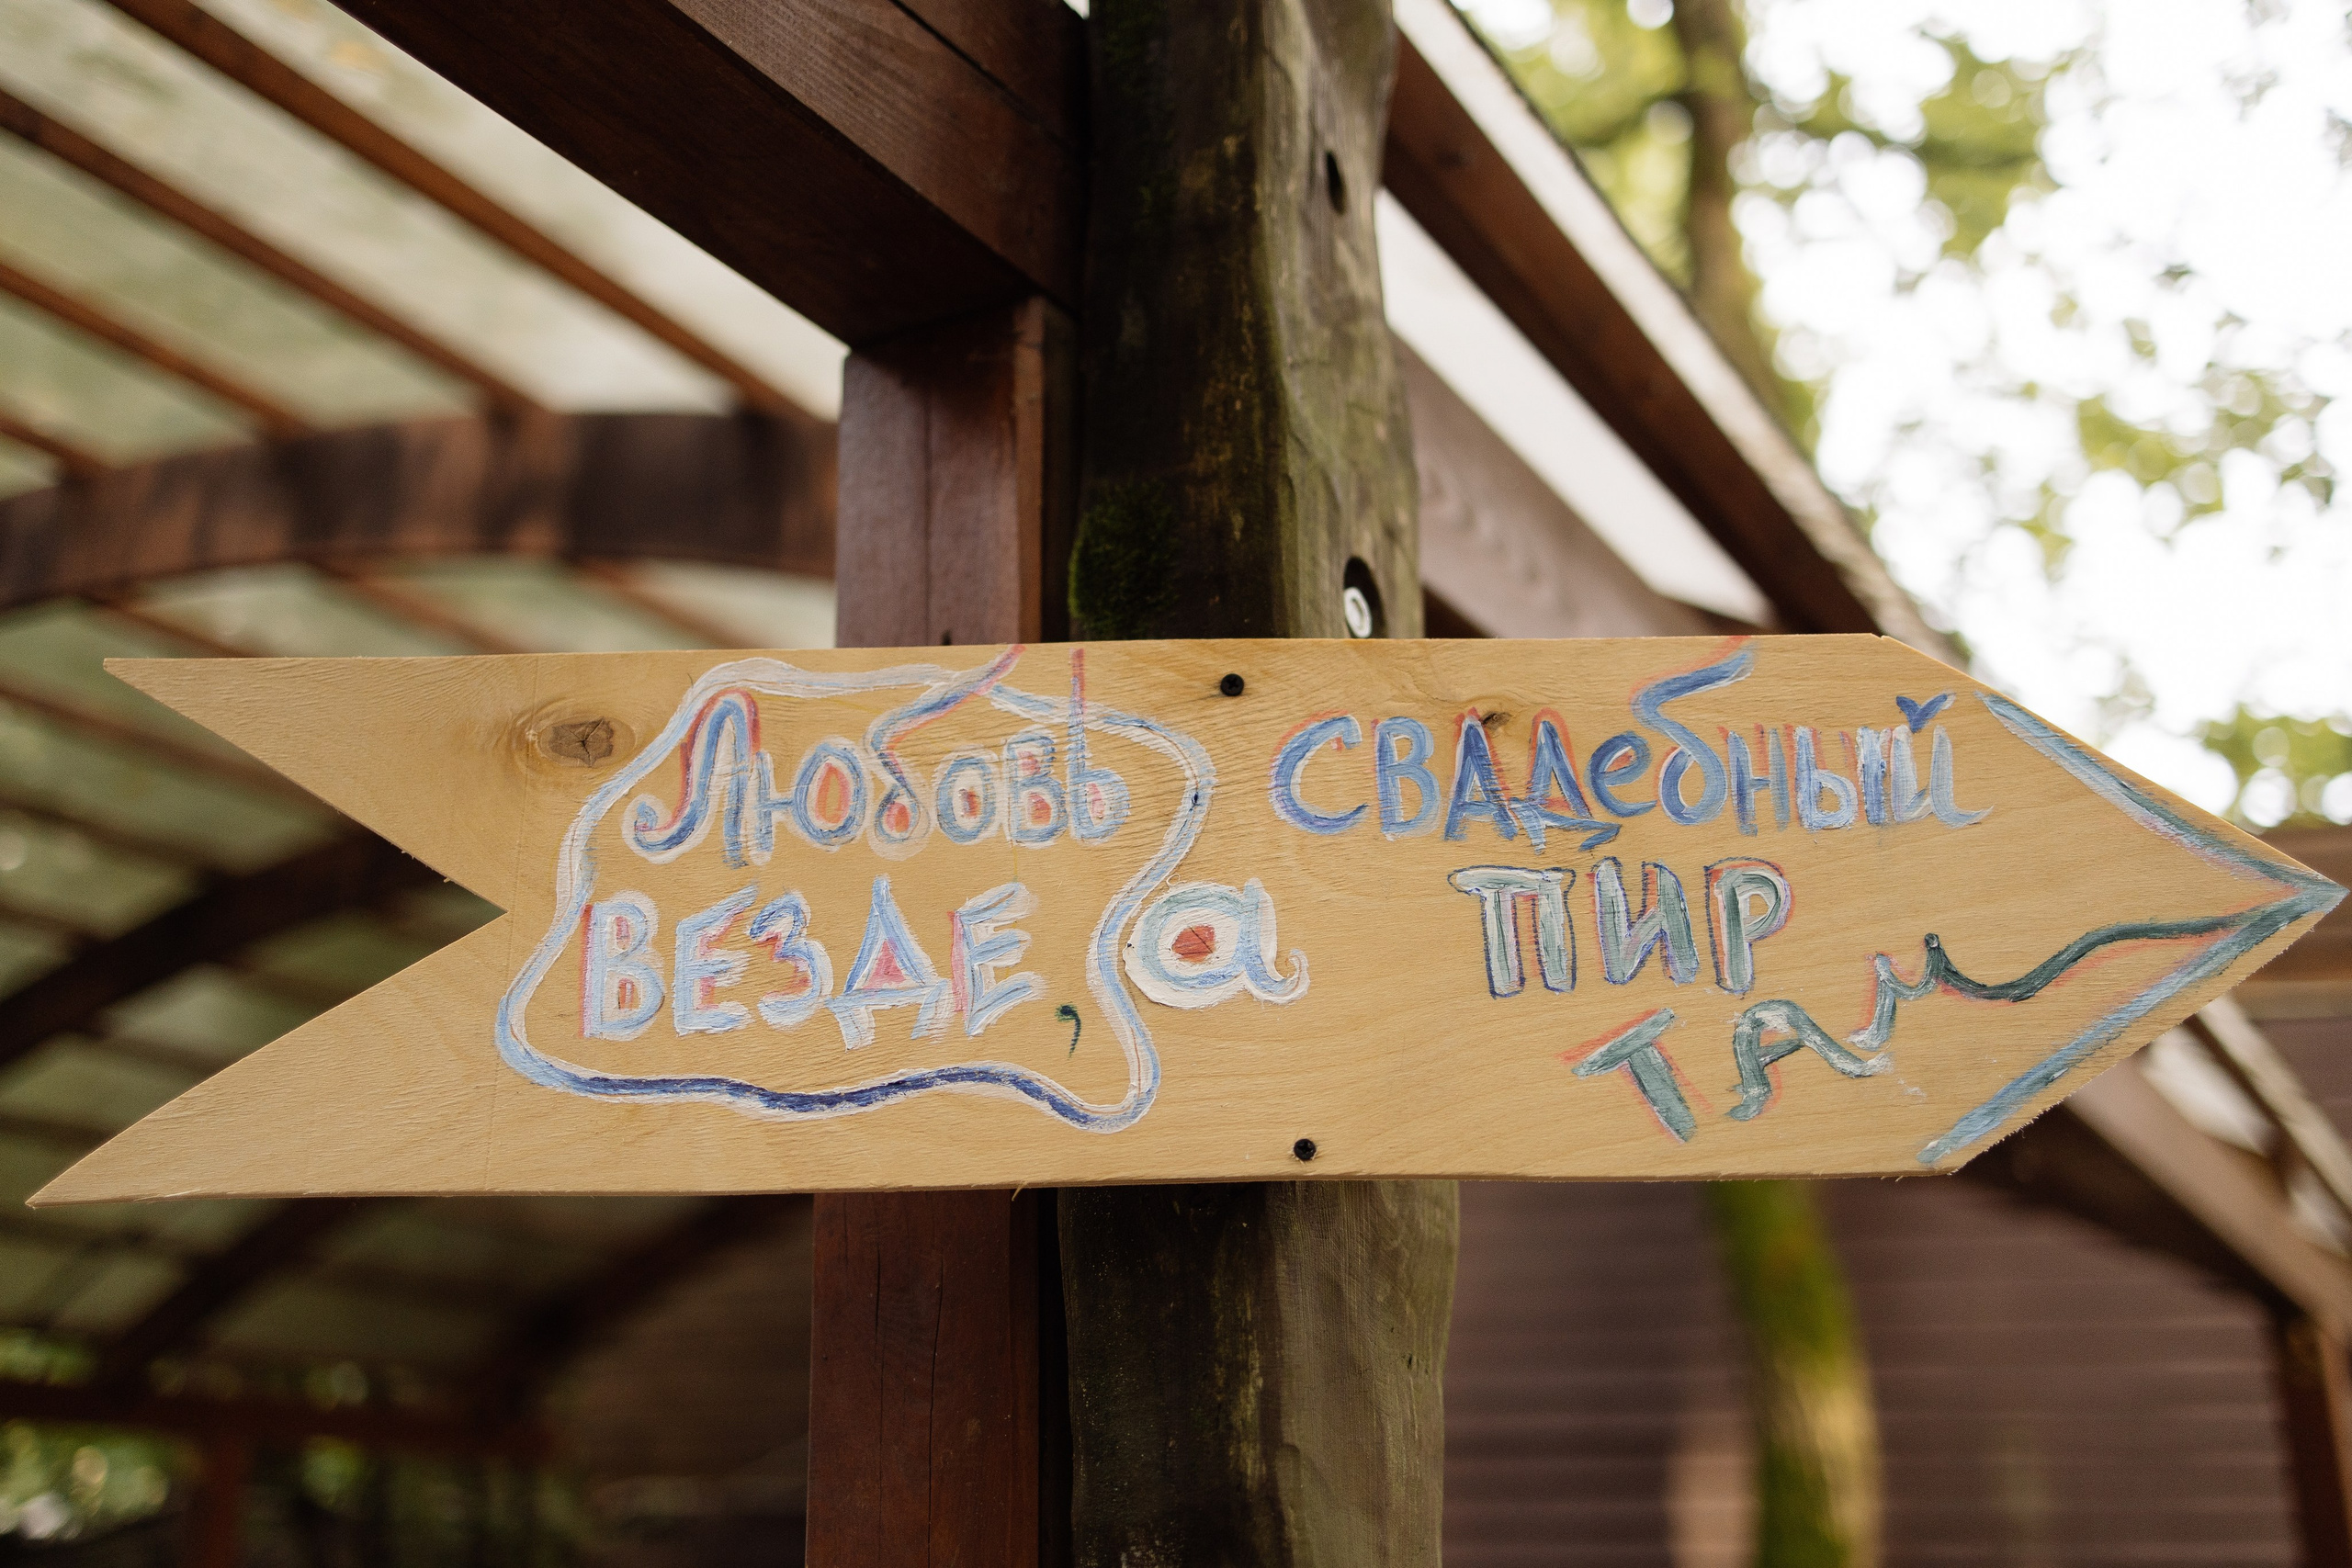 Любовь
ВЕЗДЕ, а
СВАДебный
ПИР
ТАМ